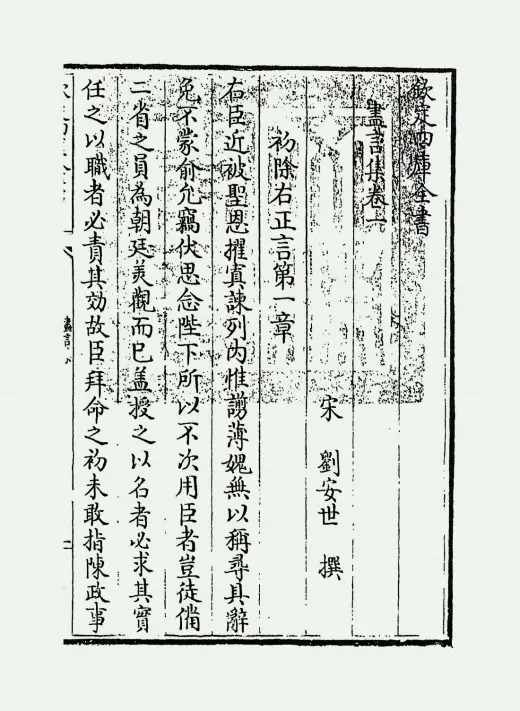 欽定四庫全書
盡言集卷一
宋 劉安世 撰
初除右正言第一章
右臣近被聖恩擢寘諫列内惟謭薄媿無以稱尋具辭
免不蒙俞允竊伏思念陛下所以不次用臣者豈徒備
二省之員為朝廷美觀而已盖授之以名者必求其實
任之以職者必責其効故臣拜命之初未敢指陳政事